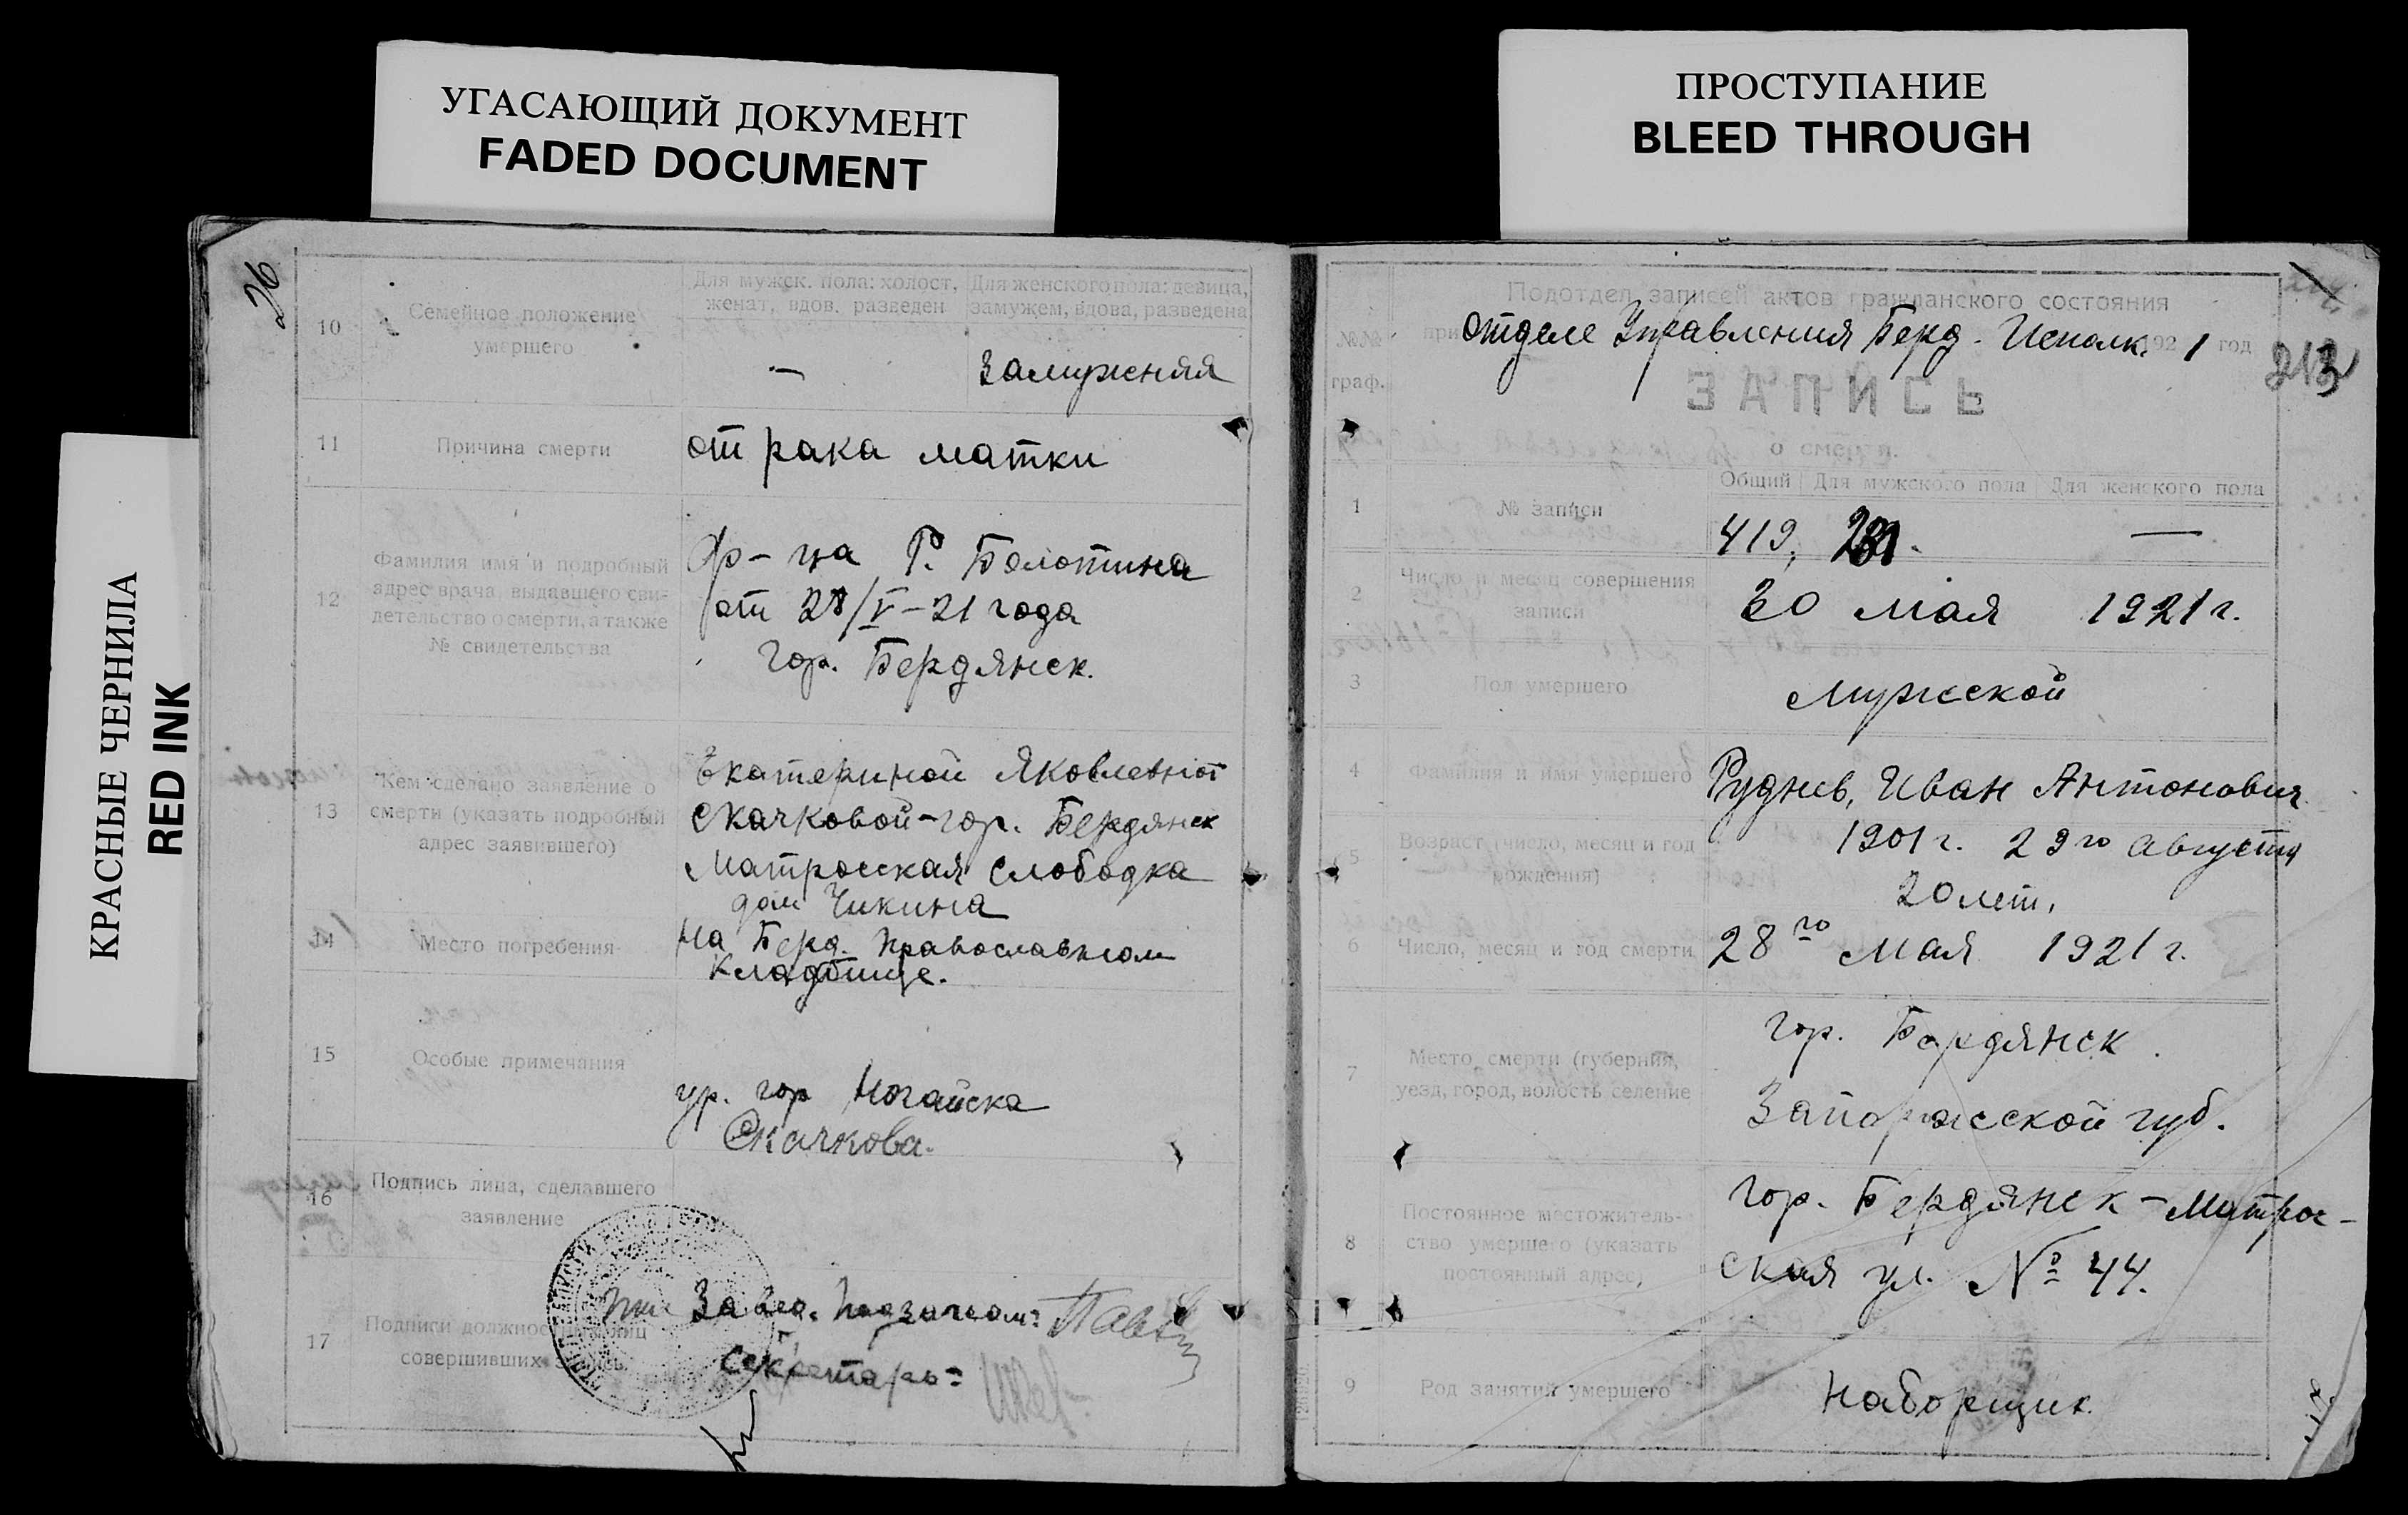 УГАСАЮЩИЙ ДОКУМЕНТ
FADED DOCUMENT
ПРОСТУПАНИЕ
BLEED THROUGH
КРАСНЫЕ ЧЕРНИЛА
RED INK
26
10
Семейное положение
умершего
Для мужск. пола: холост,
женат, вдов, разведен
Для женского пола: девица,
замужем, вдова, разведена
—
Замужняя
11
Причина смерти
от рака матки
12
Фамилия имя и подробный
адрес врача, выдавшего сви-
детельство о смерти, а также
№ свидетельства
Р. Болотина
от 28/V-21 года
гор. Бердянск.
13
Кем сделано заявление о
смерти (указать подробный
адрес заявившего)
Екатериной Яковлевной
Скачковой - гор. Бердянск
Матросская слободка
дом Чикина
14
Место погребения
На Берд. православном
кладбище.
15
Особые примечания
ур. гор Ногайска
Скачкова.
16
Подпись лица, сделавшего
заявление
17
Подписи должностных лиц
совершивших запись
Завед.
Секретарь:
Подотдел записей актов гражданского состояния
при отделе Управления Берд. Исполк. 1921 год
213
№№
граф.
ЗАПИСЬ
о смерти.
1
№ записи
Общий
Для мужского пола
Для женского пола
419,
—
2
Число и месяц совершения
записи
30 мая 1921 г.
3
Пол умершего
мужской
4
Фамилия и имя умершего
Руднев, Иван Антонович
5
Возраст (число, месяц и год
рождения)
1901 г. 29го августа
20 лет.
6
Число, месяц и год смерти
28го мая 1921 г.
7
Место смерти (губерния,
уезд, город, волость селение
гор. Бердянск.
Запорожской губ.
8
Постоянное местожитель-
ство умершего (указать
постоянный адрес)
гор. Бердянск - Матрос-
ская ул. № 44.
9
Род занятий умершего
Наборщик